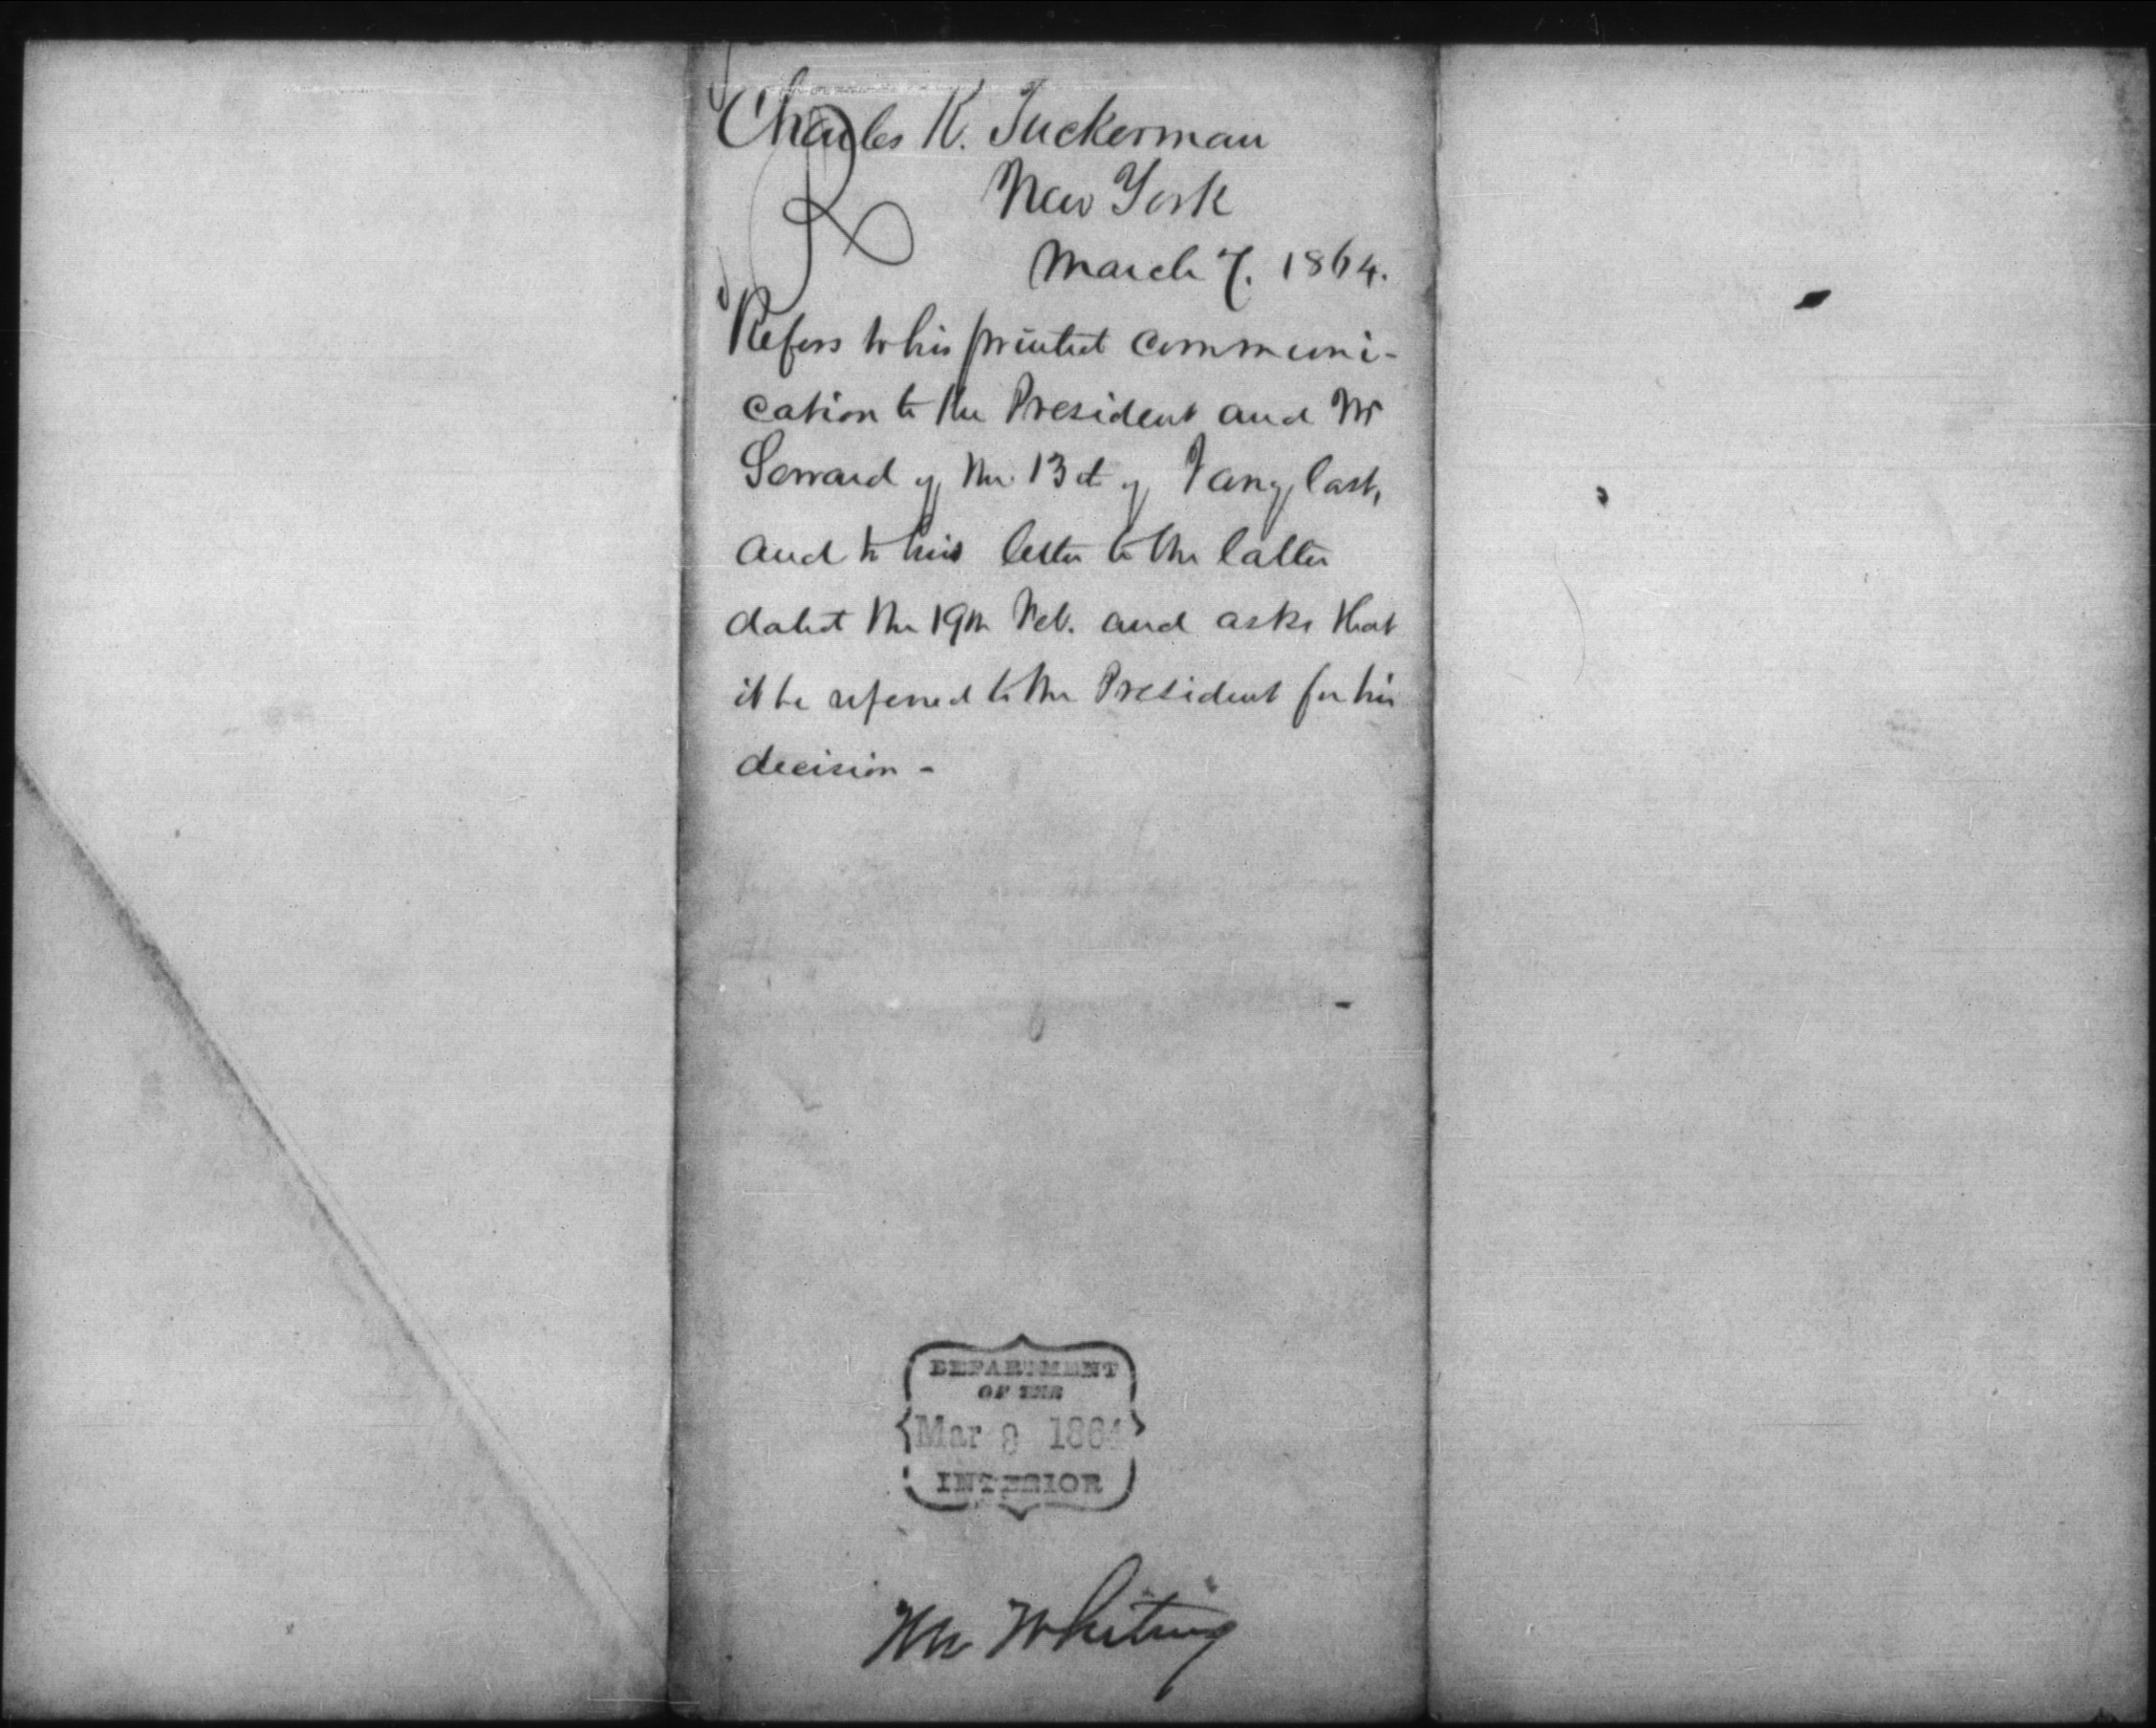 Charles K. Tuckerman
New York
March 7. 1864.
R
Refers to his printed communi-
cation to the President and Mr
Seward of the 13th of Jany last,
and to his letter to the latter
dated the 19th Feb. and asks that
it be referred to the President for his
decision -
DEPARTMENT
OF THE
Mar 8 1864
INTERIOR
Mr Whiting